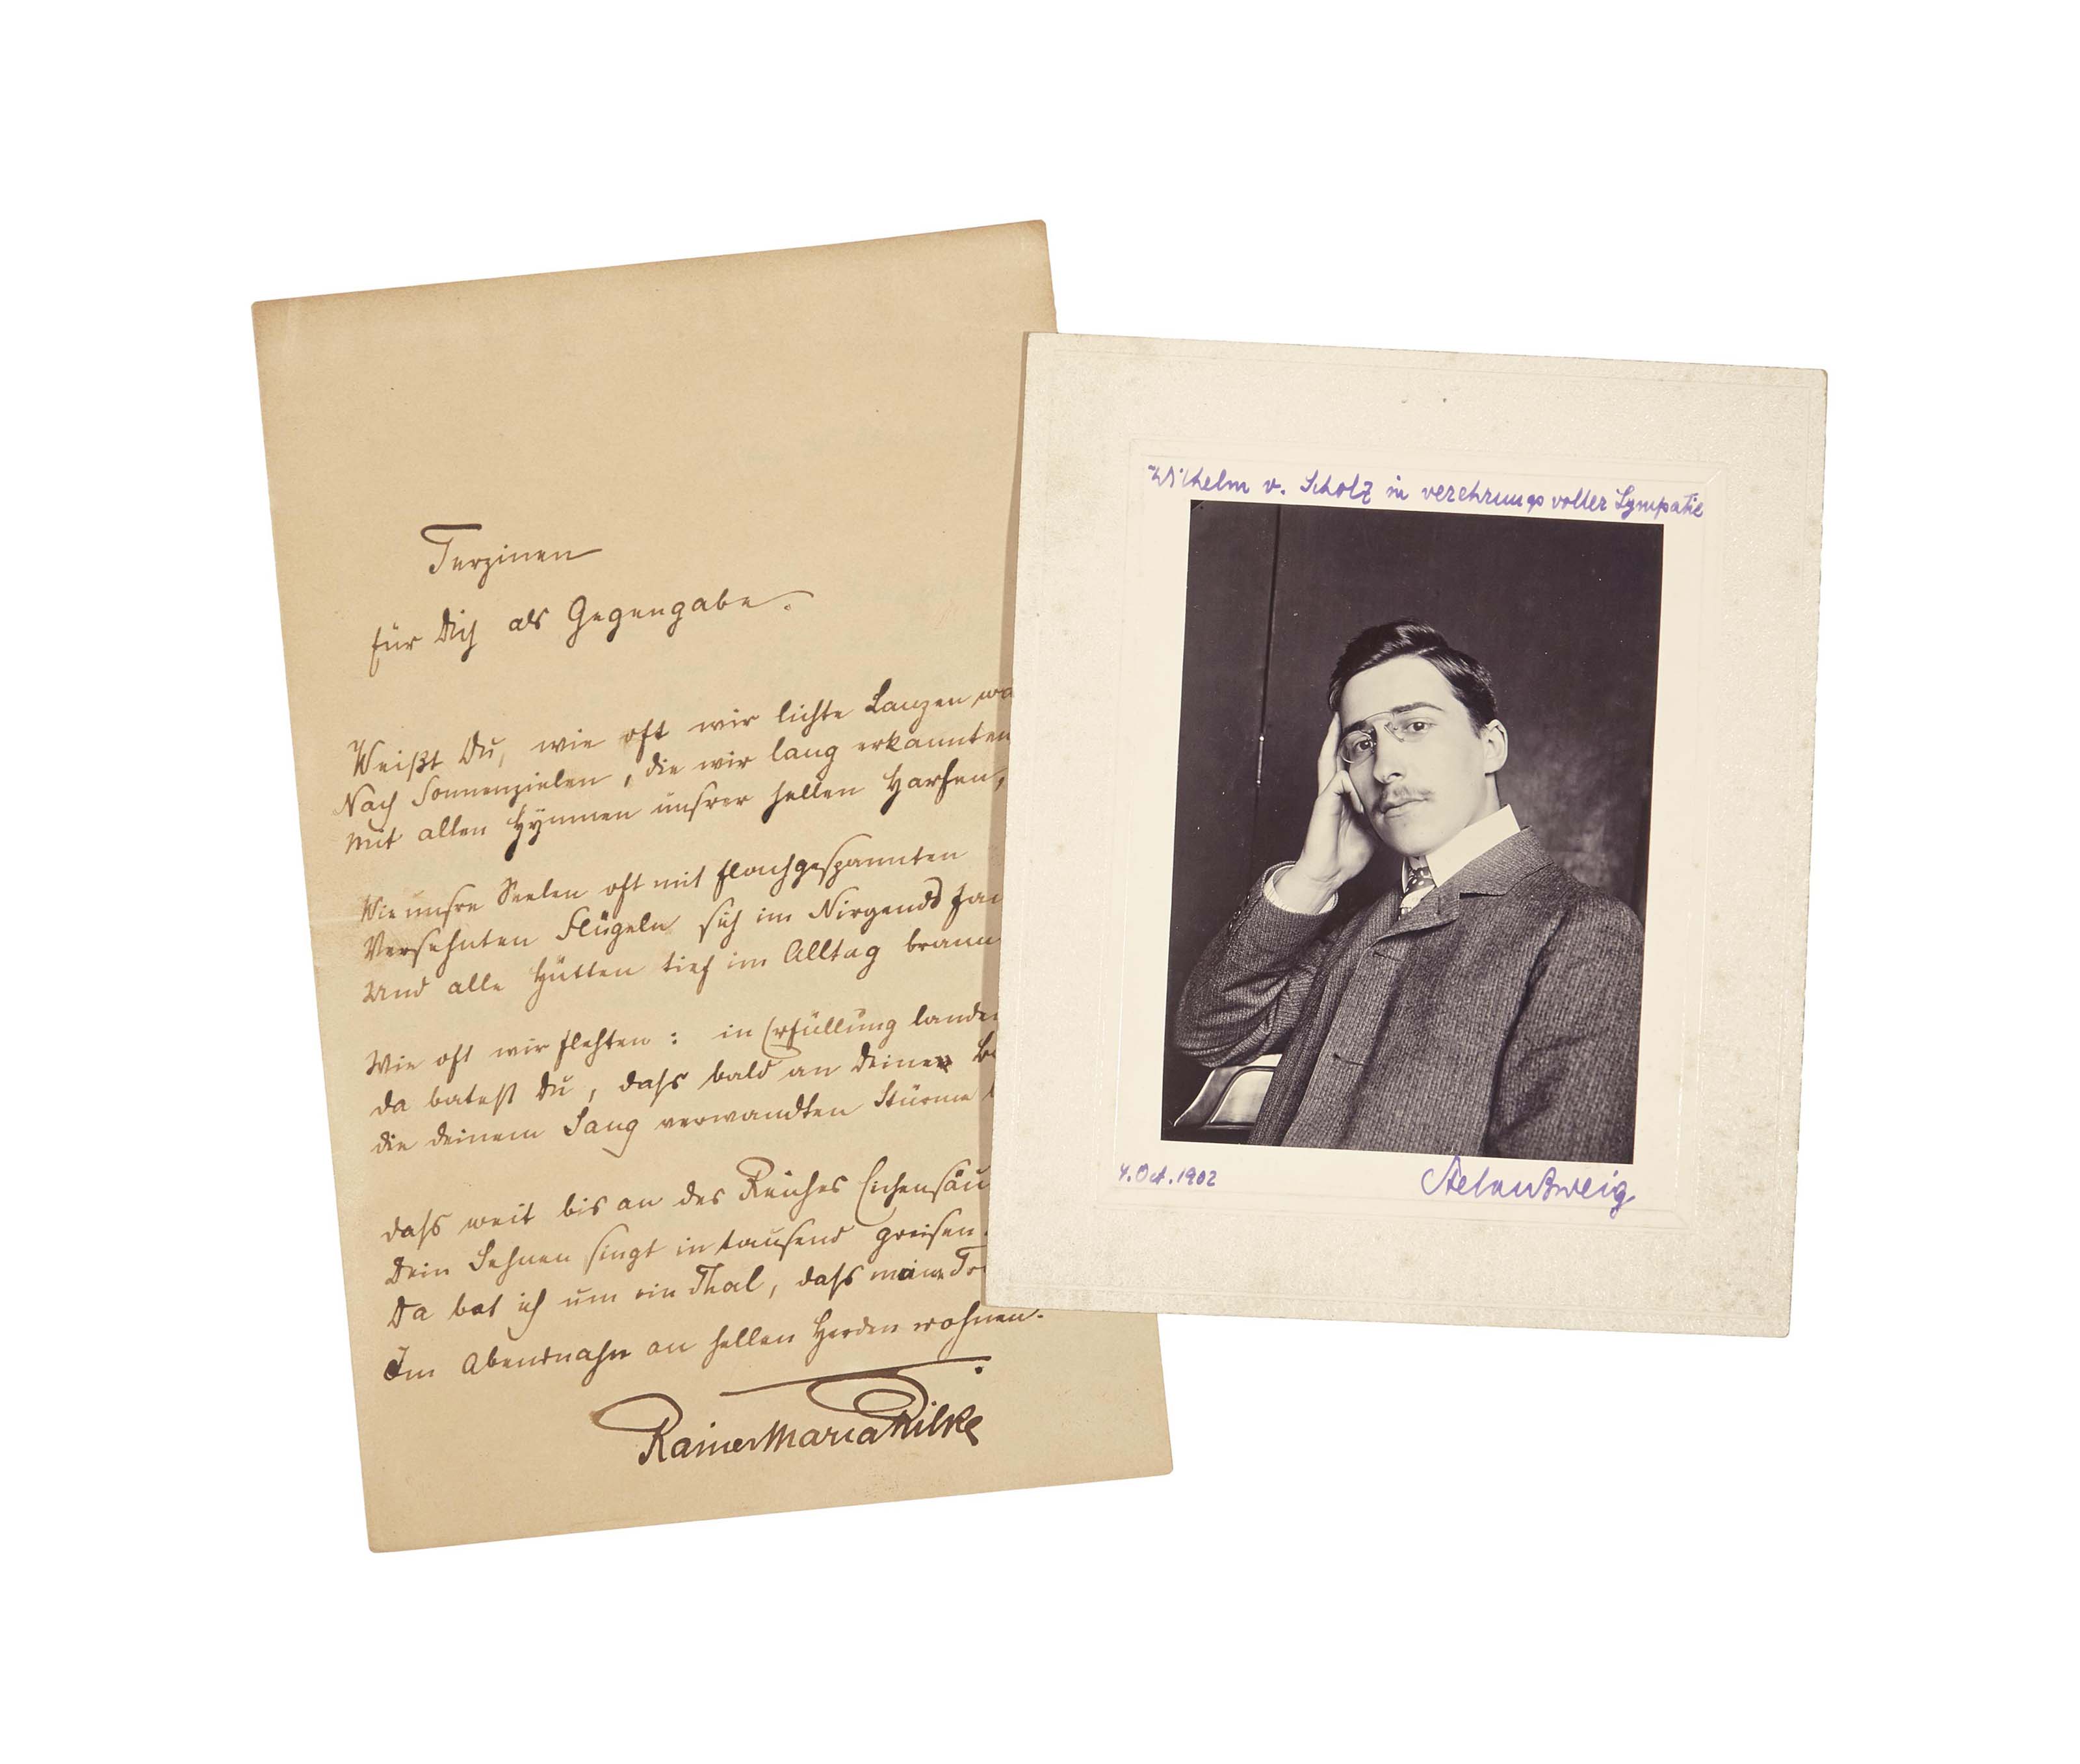 Terzinen
für Dich als Gegengabe.
Weißt Du, wie oft wir lichte Lanzen
Nach Sonnenzielen, die wir lang erkannten
mit allen Hymnen unsrer hellen Harfen,
Wie unsre Seelen oft mit flachgespannten
Versehnten Flügeln sich im Nirgends
Und alle Hütten tief im Alltag
Wie oft wir flehten: in Erfüllung
da batest Du, dass bald an Deinen
die Deinem Sang verwandten Stürme
dass weit bis an des Reiches
Dein Sehnen singt in tausend greisen
Da bat ich um ein Thal, dass meine
Im Abendnahn an hellen Herden wohnen.
Rainer Maria Rilke
Wilhelm v. Scholz in verehrungsvoller Sympatie
4. Oct. 1902
Stefan Zweig